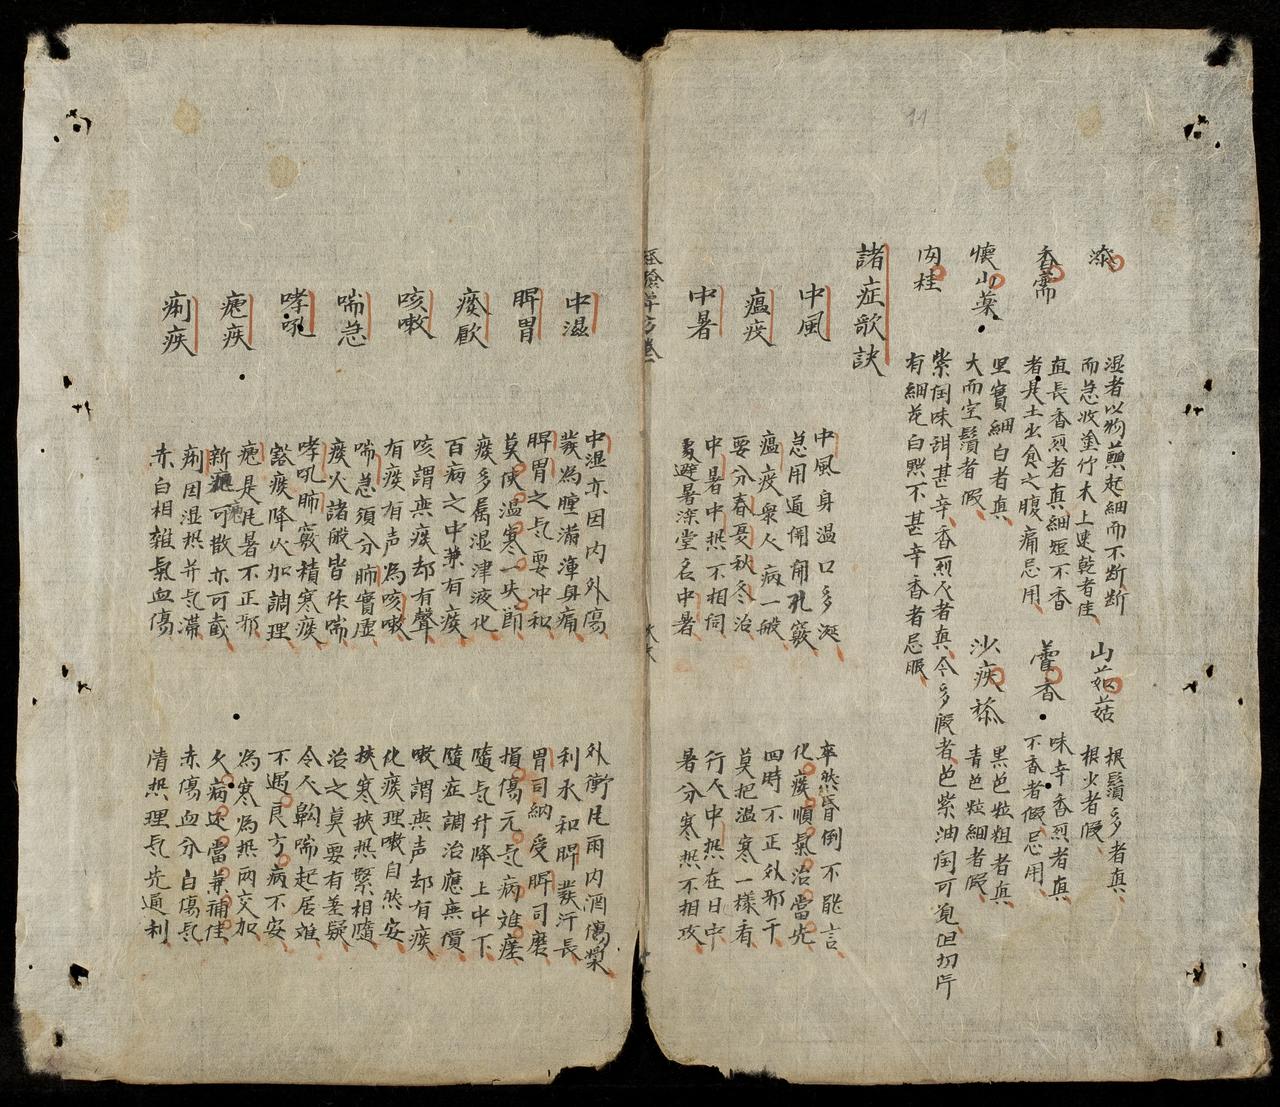 11
漆
湿者以物蘸起細而不断断
而急收塗竹木上速乾者佳
山茹菇
根鬚多者真
根少者假
香薷
直長香烈者真細短不香
者是土出食之腹痛忌用
藿香
味辛香烈者真
不香者假忌用
懷山藥
里實細白者真
大而空鬚者假
沙疾䅟
黑色粒粗者真
青色粒細者假
肉桂
紫肉味甜甚辛香烈人者真今多假者色紫油肉可覓但切斤
有細花白點不甚辛香者忌服
諸症歌訣
中風
中風身温口多涎
卒然昏倒不能言
急用通開開孔竅
化痰順氣治當先
瘟疫
瘟疫衆人病一般
四時不正外邪干
要分春夏秋冬治
莫把温寒一樣看
中暑
中暑中热不相同
行人中热在日中
避暑深堂名中暑
暑分寒热不相攻
中濕
中湿亦因内外傷
外衝尾雨内酒傷漿
發為腫滿渾身痛
利水和脾發汗長
脾胃
脾胃之气要冲和
胃司納受脾司磨
莫使温寒一失節
損傷元气病难瘥
痰厥
痰多属湿津液化
隨气升降上中下
百病之中兼有痰
隨症調治應無價
咳嗽
咳謂無痰却有聲
嗽謂無声却有痰
有痰有声為咳嗽
化痰理嗽自然安
喘急
喘急須分肺實虚
挾寒挾热緊相隨
痰火諸般皆作喘
治之莫要有差疑
哮吼
哮吼肺竅積寒痰
令人齁喘起居难
豁痰降火加調理
不遇良方病不安
瘧疾
瘧是尾暑不正邪
為寒為热两交加
新瘧可散亦可截
久病还當兼補佳
痢疾
痢因湿热并气滞
赤傷血分白傷气
赤白相雜氣血傷
清热理气先通利